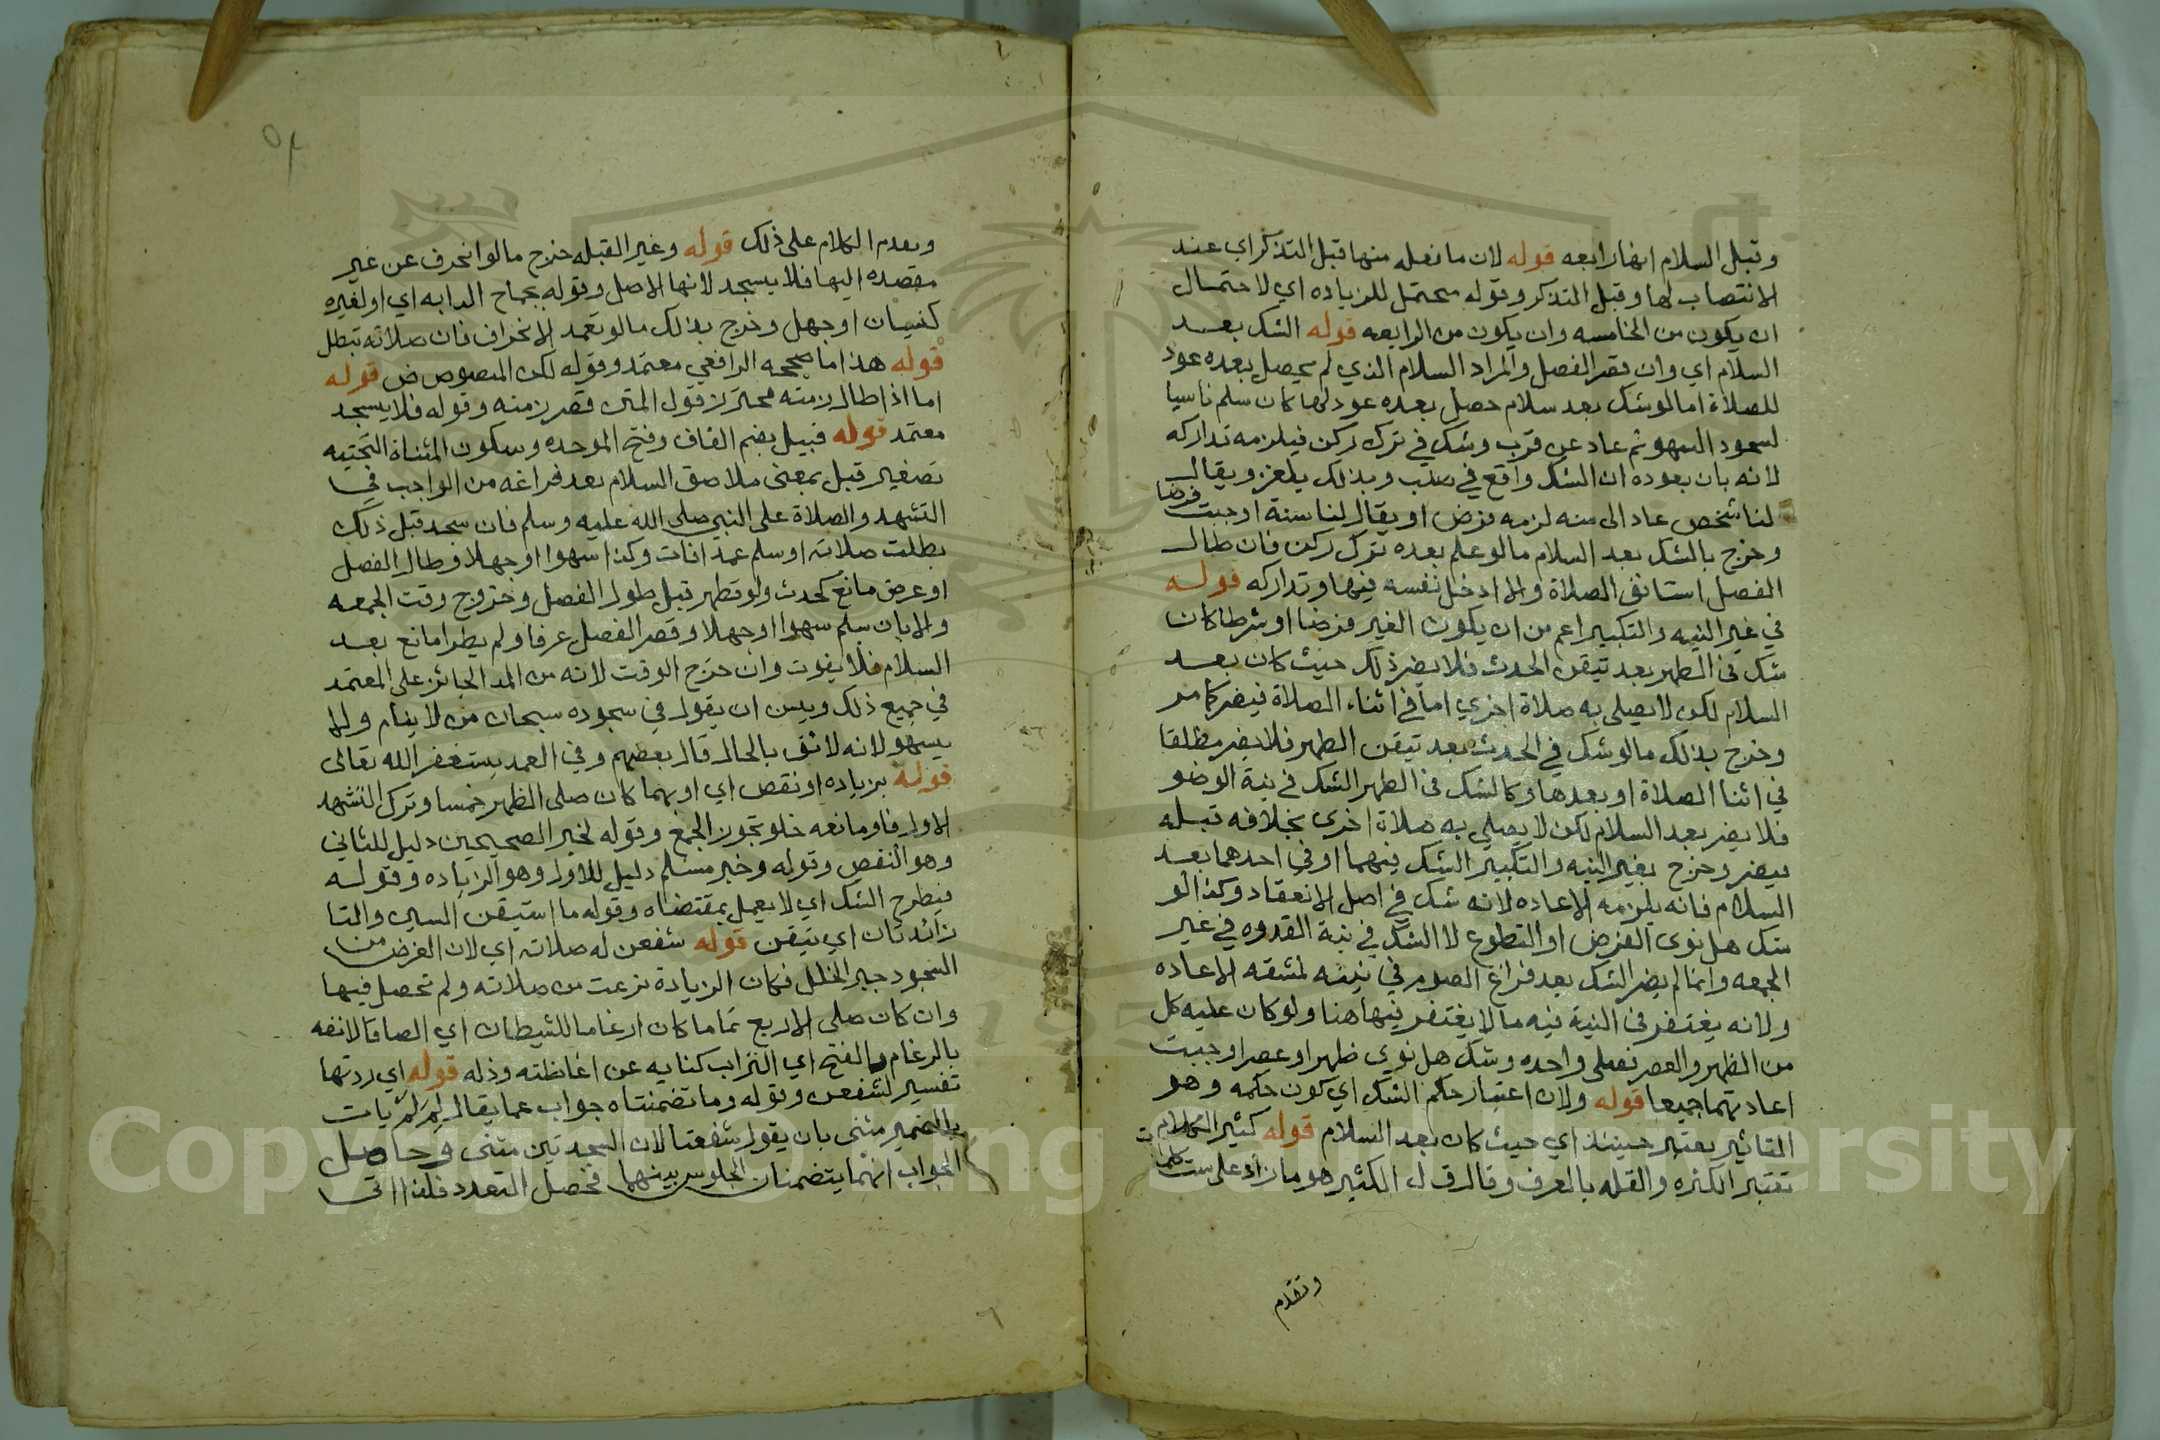 وقبل السلام انها رابعه قوله لان ما فعله منها قبل التذكر اي عند
الانتصاب لها وقبل التذكر وقوله محتمل للزياده اي لاحتمال
ان يكون من الخامسه وان يكون من الرابعه قوله الشك بعد
السلام اي وان قصر الفصل والمراد السلام الذي لم يحصل بعده عود
للصلاة اما لو شك بعد سلام حصل بعده عود لها كان سلم ناسيا
لسجود السهو ثم عاد عن قرب وشك في ترك ركن فيلزمه تداركه
لانه بان بعوده ان الشك واقع في صلب وبذلك يلغز ويقال
لنا شخص عاد الى سنه لزمه فرض او يقال لنا سنة اوجبت فرضا
وخرج بالشك بعد السلام ما لو علم بعده ترك ركن فان طال
الفصل استانف الصلاة والا ادخل نفسه فيها وتداركه قوله
في غير النيه والتكبير اعم من ان يكون الغير فرضا او شرطا كان
شك في الطهر بعد تيقن الحدث فلا يضر ذلك حيث كان بعد
السلام لكن لا يصلي به صلاة اخري اما في اثناء الصلاة فيضر كما مر
وخرج بذلك ما لو شك في الحدث بعد تيقن الطهر فلا يضر مطلقا
في اثنا الصلاة او بعدها وكالشك في الطهر الشك في نية الوضو
فلا يضر بعد السلام لكن لا يصلي به صلاة اخرى بخلافه قبله
فيضر وخرج بغير النيه والتكبير الشك فيهما او في احدهما بعد
السلام فانه يلزمه الاعاده لانه شك في اصل الانعقاد وكذا لو
شك هل نوى الفرض او التطوع لا الشك في نية القدوه في غير
الجمعه وانما لم يضر الشك بعد فراغ الصوم في نيته لمشقه الاعاده
ولانه يغتفر في النية فيه ما لا يغتفر فيها هنا ولو كان عليه كل
من الظهر والعصر فصلى واحده وشك هل نوي ظهرا او عصرا وجبت
اعادتهما جميعا قوله ولان اعتبار حكم الشك اي كون حكمه وهو
التاثير يعتبر حينئذ اي حيث كان بعد السلام قوله كثير الكلام
تعتبر الكثره والقله بالعرف وقال ق ل الكثير هو ما زاد على ست كلمات
وتقدم
وتقدم الكلام على ذلك قوله وغير القبله خرج ما لو انحرف عن غير
مقصده اليها فلا يسجد لانها الاصل وقوله بجماح الدابه اي او لغيره
كنسيان او جهل وخرج بذلك ما لو تعمد الانحراف فان صلاته تبطل
قوله هذا ما صححه الرافعي معتمد وقوله لكن المنصوص ض قوله
اما اذا طال زمنه محترز قول المتن قصر زمنه وقوله فلا يسجد
معتمد قوله قبيل بضم القاف وفتح الموحده وسكون المثناة التحتيه
تصغير قبل بمعنى ملاصق السلام بعد فراغه من الواجب في
التشهد والصلاة على النبي صلى الله عليه وسلم فان سجد قبل ذلك
بطلت صلاته او سلم عمدا فات وكذا سهوا او جهلا وطال الفصل
او عرض مانع كحدث ولو تطهر قبل طول الفصل وخروج وقت الجمعه
والا بان سلم سهوا او جهلا وقصر الفصل عرفا ولم يطرا مانع بعد
السلام فلا يفوت وان خرج الوقت لانه من المد الجائز على المعتمد
في جميع ذلك ويسن ان يقول في سجوده سبحان من لا ينام ولا
يسهو لانه لائق بالحال قال بعضهم وفي العمد يستغفر الله تعالى
قوله بزياده او نقص اي او بهما كان صلى الظهر خمسا وترك التشهد
الاول فاو مانعه خلو تجوز الجمع وقوله لخبر الصحيحين دليل للثاني
وهو النقص وقوله وخبر مسلم دليل للاول وهو الزياده وقوله
فيطرح الشك اي لا يعمل بمقتضاه وقوله ما استيقن السين والتا
زائدتان اي تيقن قوله شفعن له صلاته اي لان الغرض من
السجود جبر الخلل فكان الزيادة نزعت من صلاته ولم تحصل فيها
وان كان صلى الاربع تماما كان ارغاما للشيطان اي الصاقا لانفه
بالرغام بالفتح اي التراب كنايه عن اغاظته وذله قوله اي ردتها
تفسير لشفعن وقوله وما تضمنتاه جواب عما يقال لم لم يات
بالضمير مثنى بان يقول شفعتا لان السجدتين مثنى وحاصل
الجواب انهما يتضمنان الجلوس بينهما فحصل التعدد فلذا اتى
Copyright © King Saud University